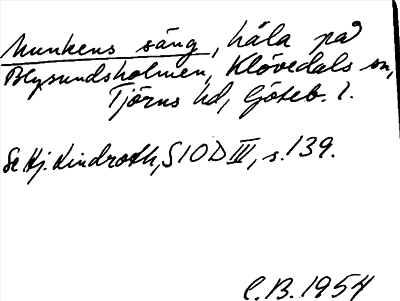 Munkens säng, håla på
Blysundsholmen, Klövedals sn,
Tjörns hd, Göteb. l.
Se Hj. Lindroth, SIOD III, s. 139.
C.B. 1954